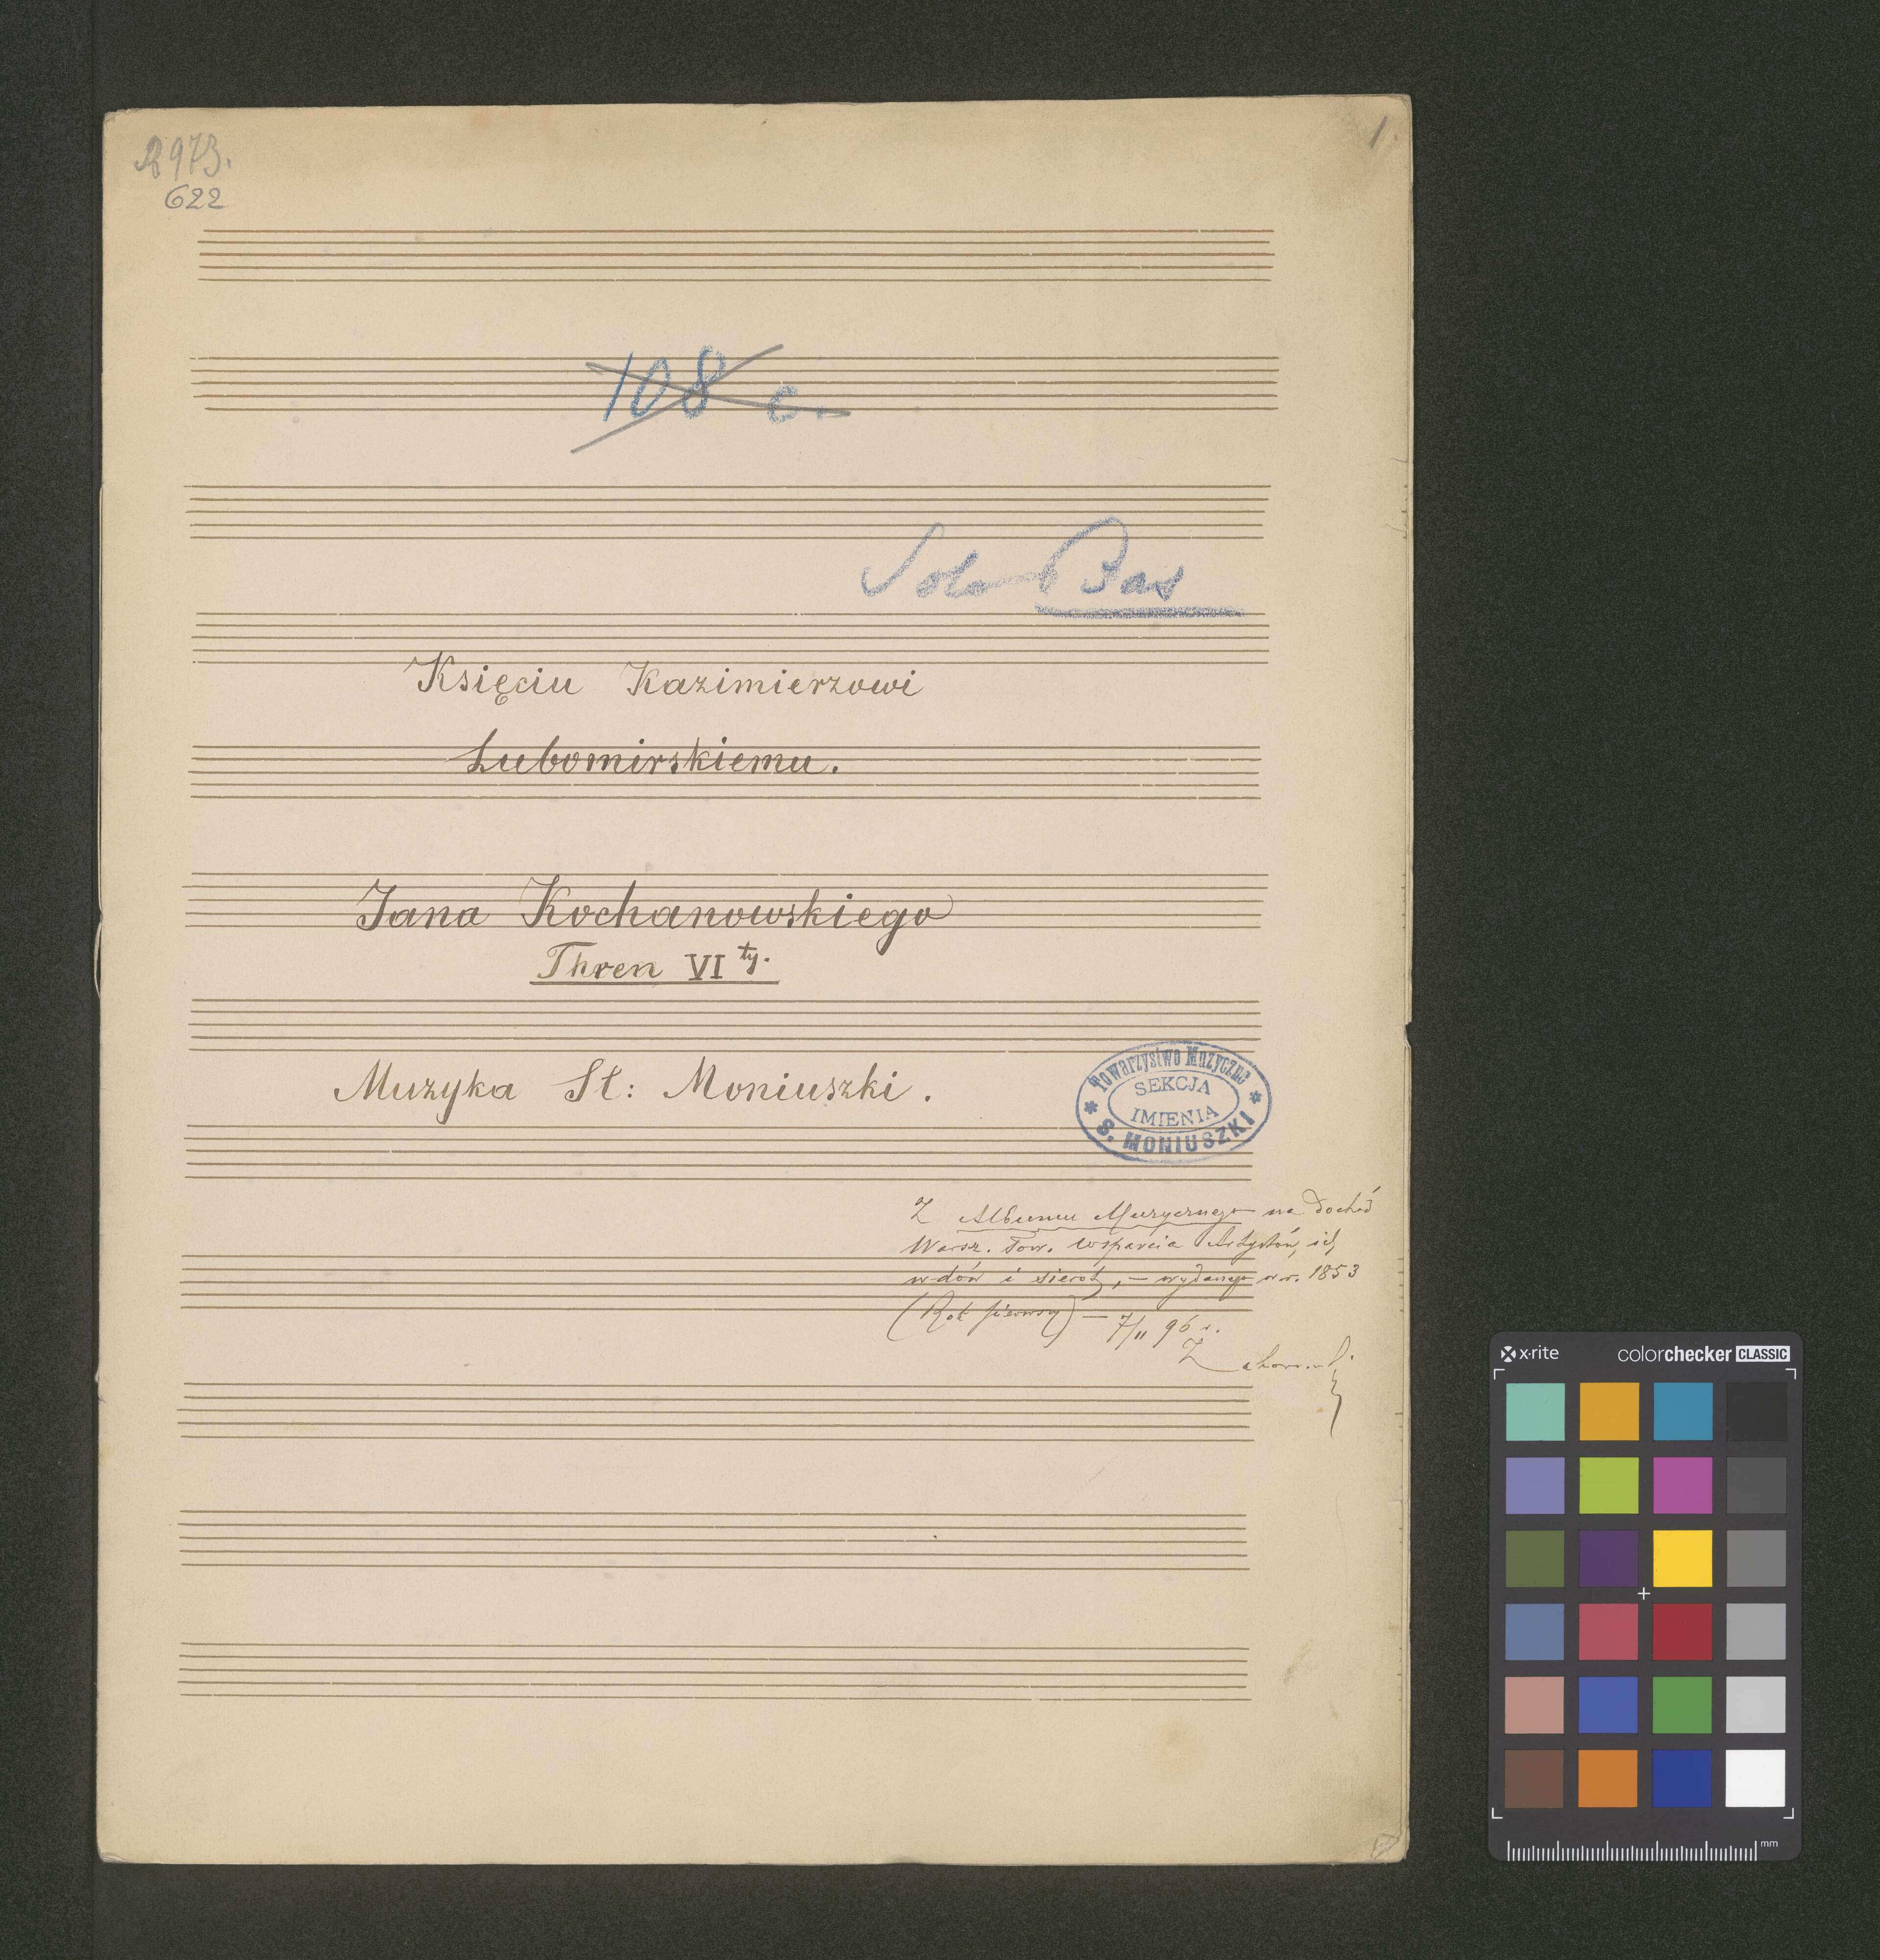 R 973.
622
1.
108 c.
Solo Bas
Księciu Kazimierzowi
Lubomirskiemu.
Jana Kochanowskiego
Thren VI ty.
Muzyka St: Moniuszki.
Towarzystwo Muzyczne
SEKCJA
IMIENIA
S. MONIUSZKI
Z Albumu Muzycznego na dochód
Warsz. Tow. wsparcia Artystów, ich
wdów i sierót, – wydanego w r. 1853
(Rok pierwszy) – 7/II 96 r.
x-rite
colorchecker CLASSIC
mm